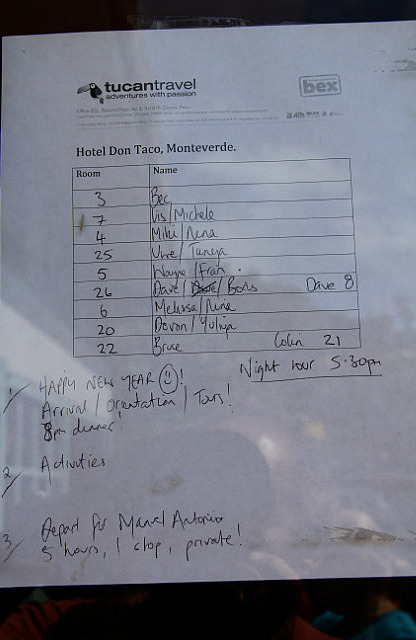 tucantravel
adventures with passion
bex
Hotel Don Taco, Monteverde.
Room Name
3 Bec
7 Vis/Michele
4 Miki/Nena
25 Uwe/Tanya
5 Wayne/Fran.
26 Dave/ /Boris Dave 8
6 Melissa/Nina
20 Devon/Yuliya
22 Bruse Colin 21
Night tour 5.30pm
1/ HAPPY NEW YEAR ☺!
Arrival/Orientation/Tours!
8pm dinner!
2/ Activities
3/ Depart for Manuel Antonio
5 hours, 1 stop, private!